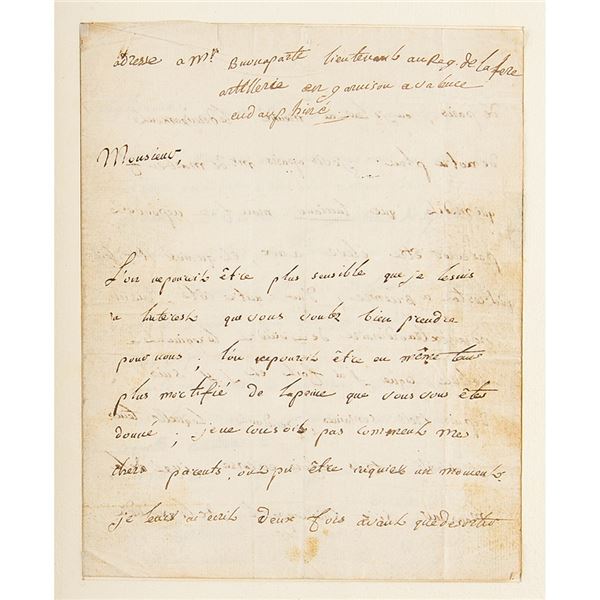 adresse a Mr Buonaparte lieutenant au Reg. de la fere
artillerie en garnison a valence
en dauphiné
Monsieur,
L'on ne pouroit être plus sensible que je le suis
a linteresh que vous voulez bien prendre
pour nous ; l'on ne pouroit être en même tems
plus mortifié de la peine que vous vous êtes
donné ; je ne conçois pas comment mes
chers parents, ont pu être inquiets un moment.
je leurs ai ecrit deux fois avant que de
1.